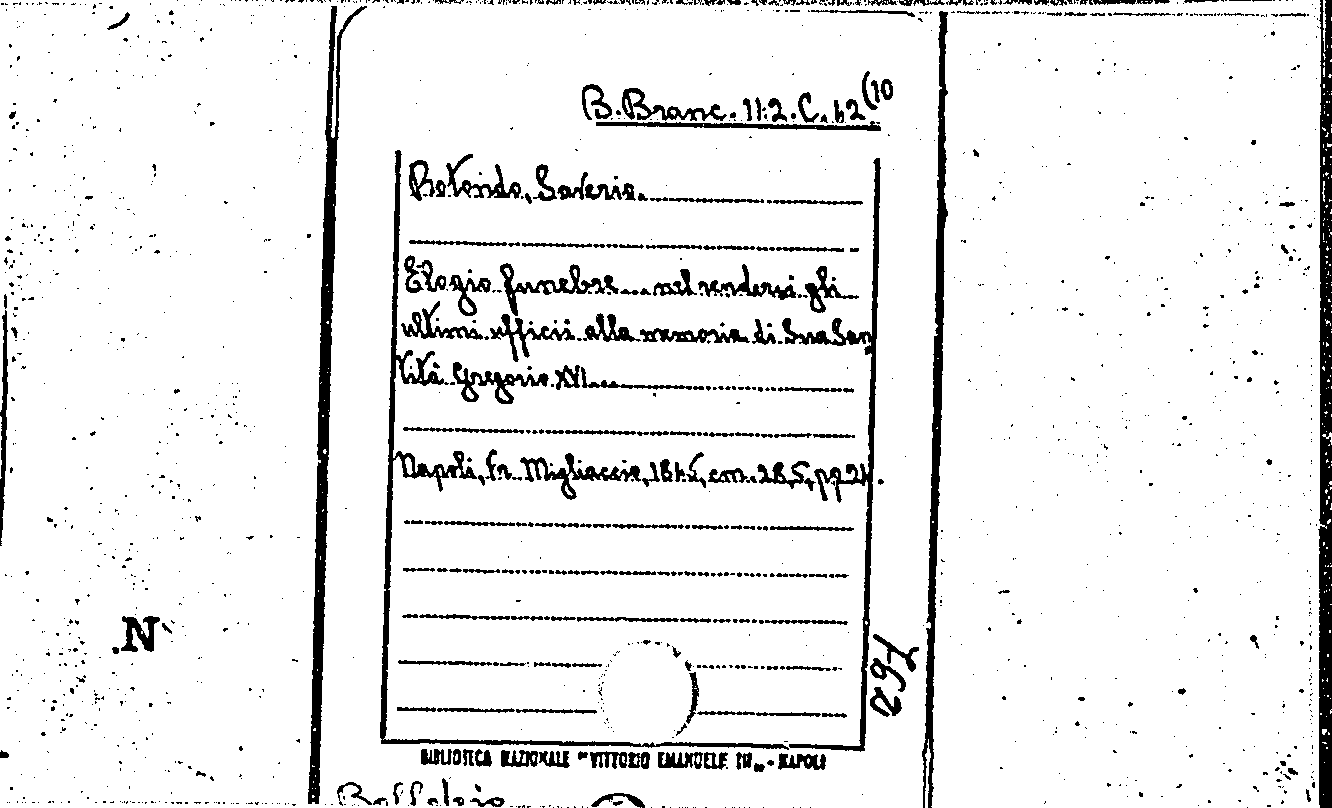 B. Branc. 112. C. 42 (10
Rotondo, Saverio.
Elogio funebre... nel rendersi gli
ultimi ufficii alla memoria di Sua San
tità Gregorio XVI...
Napoli, fr. Migliaccio, cm. 28,5, pp.
.N
BIBLIOTECA NAZIONALE "VITTORIO EMANUELE III" - NAPOLI